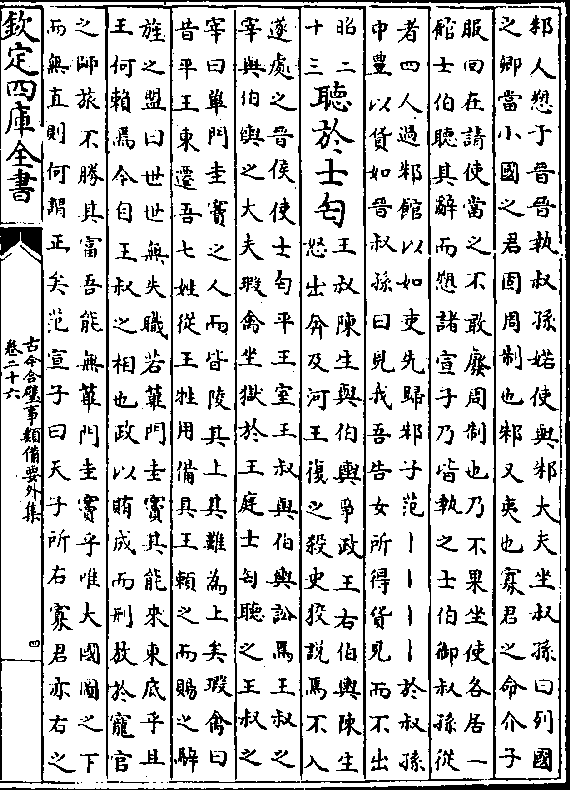 邾人愬于晉晉執叔孫婼使與邾大夫坐叔孫曰列國
之卿當小國之君固周制也邾又夷也寡君之命介子
服回在請使當之不敢廢周制也乃不果坐使各居一
館士伯聽其辭而愬諸宣子乃皆執之士伯御叔孫從
者四人過邾館以如吏先歸邾子范丨丨丨丨於叔孫
申豐以貨如晉叔孫曰見我吾告女所得貨見而不出
昭二
十三
聽於士匄
王叔陳生與伯輿爭政王右伯輿陳生
怒出奔及河王復之殺史狡説焉不入
遂處之晉侯使士匄平王室王叔與伯輿訟焉王叔之
宰與伯輿之大夫瑕禽坐獄於王庭士匄聽之王叔之
宰曰單門圭竇之人而皆陵其上其難為上矣瑕禽曰
昔平王東遷吾七姓從王牲用備具王賴之而賜之騂
旄之盟曰世世無失職若蓽門圭竇其能來東底乎且
王何賴焉今自王叔之相也政以賄成而刑放於寵官
之師旅不勝其富吾能無蓽門圭竇乎唯大國圖之下
而無直則何謂正矣范宣子曰天子所右寡君亦右之
欽定四庫全書
古今合璧事類備要外集
卷二十六
四